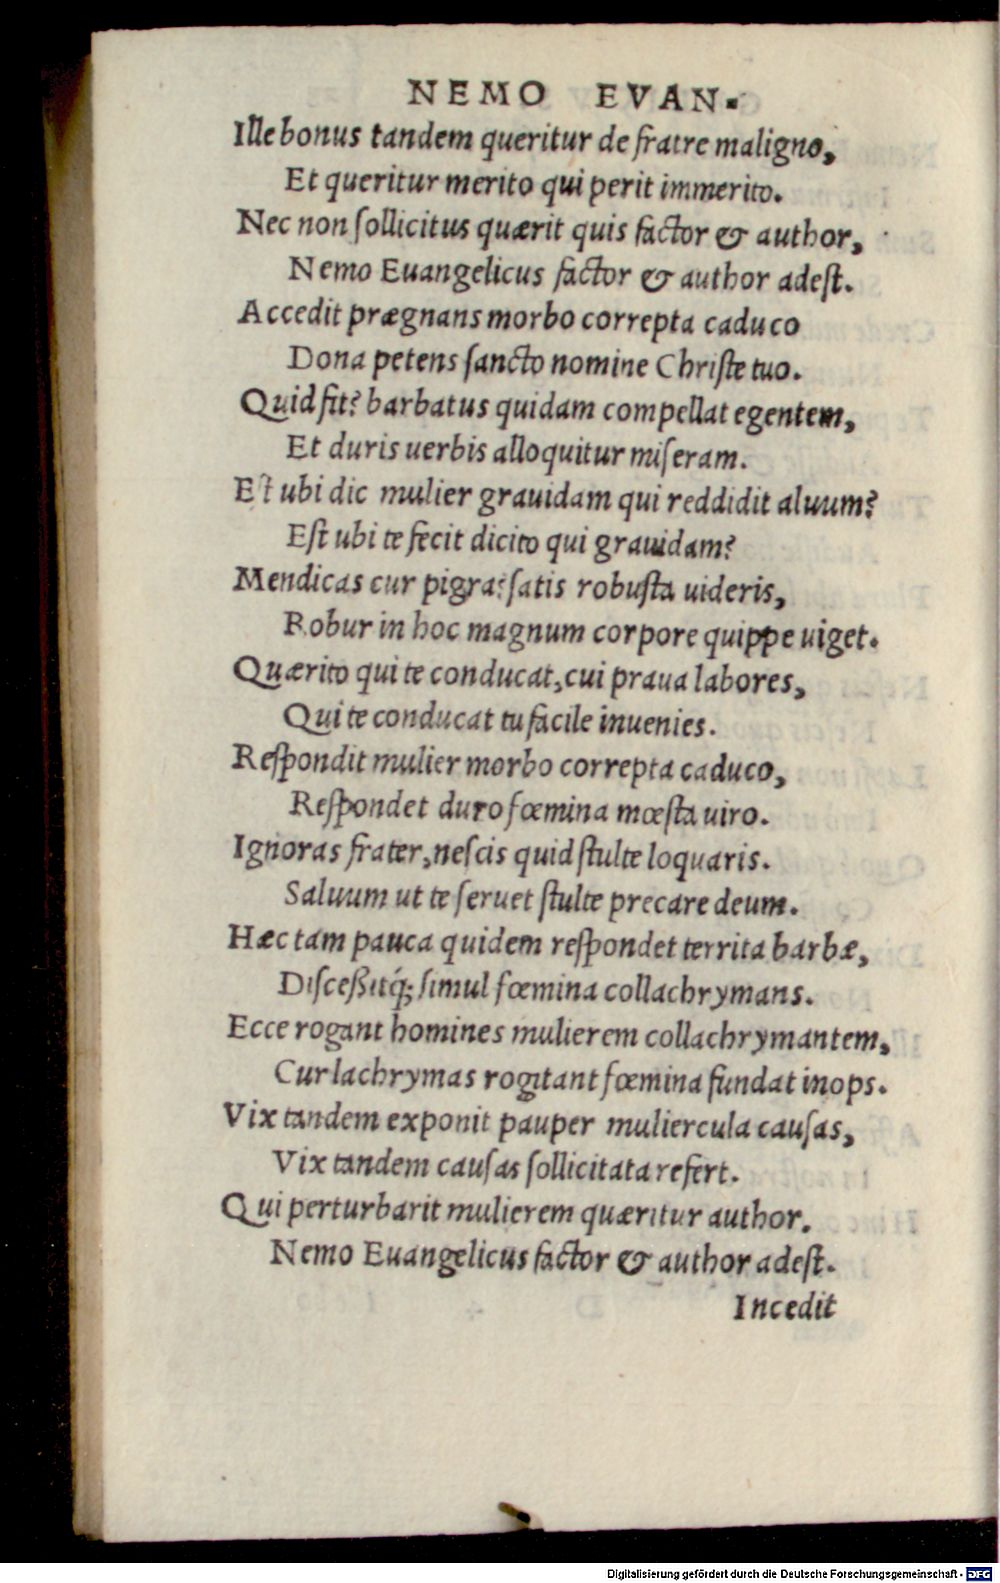 NEMO EVAN-
Ille bonus tandem queritur de fratre maligno,
Et queritur merito qui perit immerito.
Nec non ſollicitus quærit quis factor & author,
Nemo Euangelicus factor & author adeſt.
Accedit prægnans morbo correpta caduco
Dona petens ſancto nomine Chriſte tuo.
Quid fit? barbatus quidam compellat egentem,
Et duris uerbis alloquitur miſeram.
Eſt ubi dic mulier grauidam qui reddidit aluum?
Eſt ubi te fecit dicito qui grauidam?
Mendicas cur pigra? ſatis robuſta uideris,
Robur in hoc magnum corpore quippe uiget.
Quærito qui te conducat, cui praua labores,
Qui te conducat tu facile inuenies.
Reſpondit mulier morbo correpta caduco,
Reſpondet duro fœmina mœſta uiro.
Ignoras frater, neſcis quid ſtulte loquaris.
Saluum ut te ſeruet ſtulte precare deum.
Hæc tam pauca quidem reſpondet territa barbæ,
Diſceßitq́; ſimul fœmina collachrymans.
Ecce rogant homines mulierem collachrymantem,
Cur lachrymas rogitant fœmina fundat inops.
Vix tandem exponit pauper muliercula cauſas,
Vix tandem cauſas ſollicitata refert.
Qui perturbarit mulierem quæritur author.
Nemo Euangelicus factor & author adeſt.
Incedit
Digitalisierung gefördert durch die Deutsche Forschungsgemeinschaft - DFG